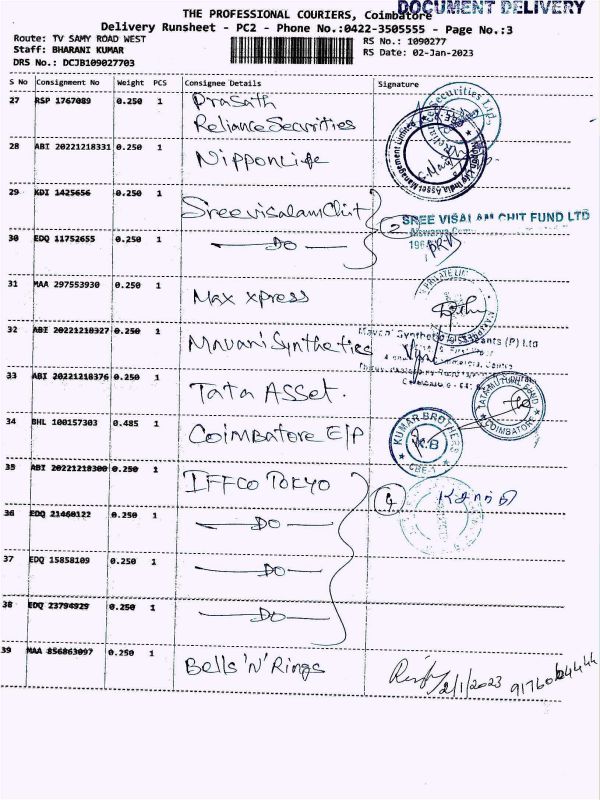 DOCUMENT DELIVERY
THE PROFESSIONAL COURIERS, Coimbatore
Delivery Runsheet - PC2 - Phone No.:0422-3505555 - Page No.:3
Route: TV SAMY ROAD WEST
RS No.: 1090277
Staff: BHARANI KUMAR
RS Date: 02-Jan-2023
DRS No.: DCJB109027703
S No Consignment No Weight PCS Consignee Details Signature
27 RSP 1767089 0.250 1 Prasath
Reliance Securities
28 ABI 20221218331 0.250 1 Nippon Life
29 KDI 1425656 0.250 1 Sreevisalam Chit
30 EDQ 11752655 0.250 1 DO
2
SREE VISALAM CHIT FUND LTD
31 MAA 297553930 0.250 1 Max xpress
32 ABI 20221218327 0.250 1 Mavani Synthetics
33 ABI 20221218376 0.250 1 Tata Asset.
TATA MUTUAL FUND
COIMBATORE
34 BHL 100157303 0.485 1 Coimbatore E/P
KUMAR BROTHERS
K.B
CBE-1
35 ABI 20221218300 0.250 1 IFFCO TOKYO
4
36 EDQ 21460122 0.250 1 DO
37 EDQ 15858109 0.250 1 DO
38 EDQ 23794929 0.250 1 DO
39 MAA 856863097 0.250 1 Bells 'N' Rings
2/1/2023